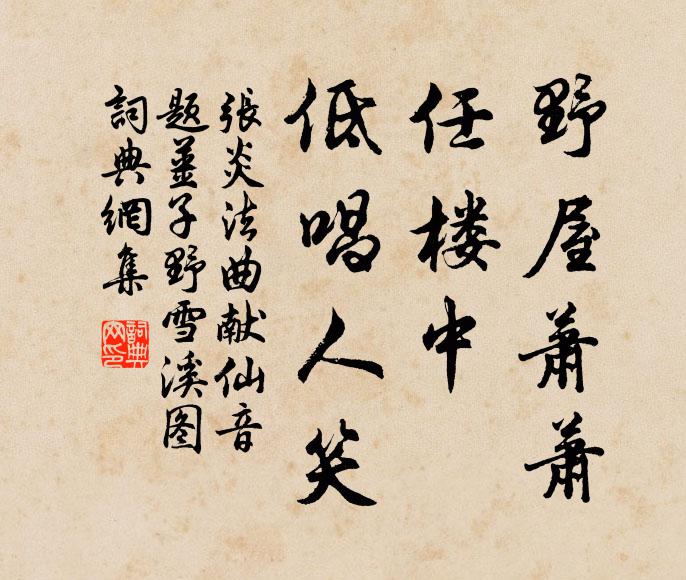 野屋蕭蕭
任楼中
低唱人笑
張炎法曲献仙音
题薑子野雪溪图
詞典網集
詞典
网印